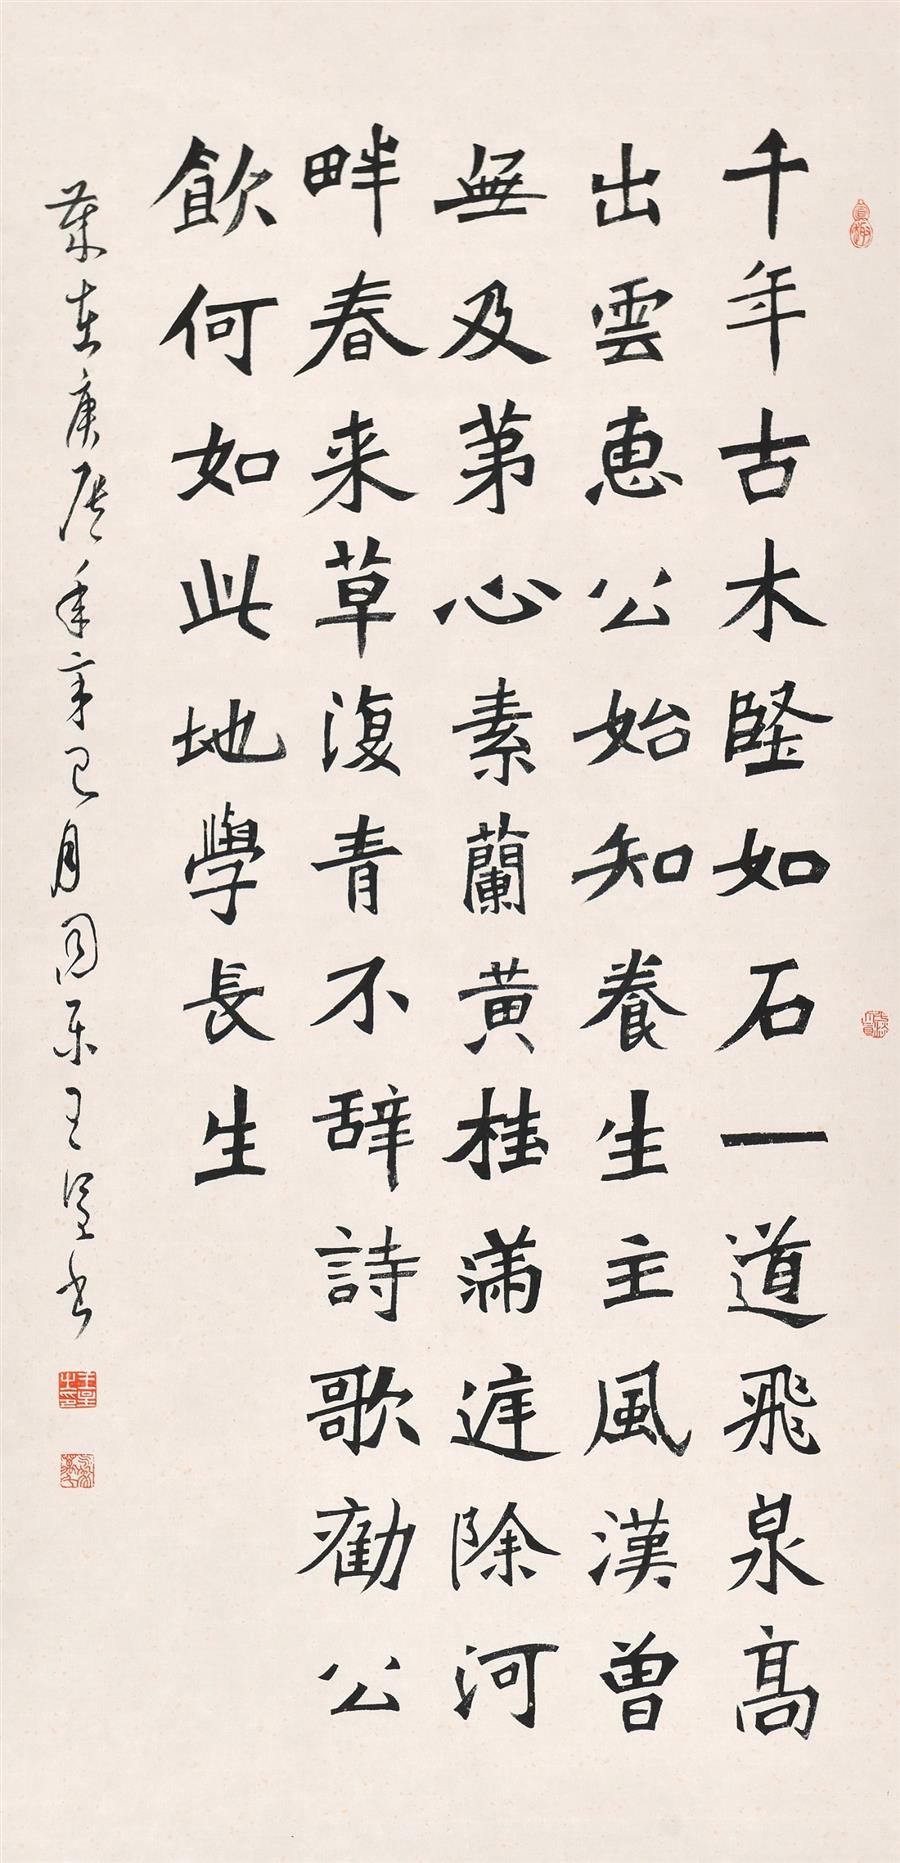 千年古木豎如石一道飛泉高
出雲惠公始知養生主風漢曾
無及第心素蘭黃桂滿庭除河
畔春来草復青不辞詩歌勸公
飲何如此地學長生
歲在庚辰年辛巳月同
王堂書